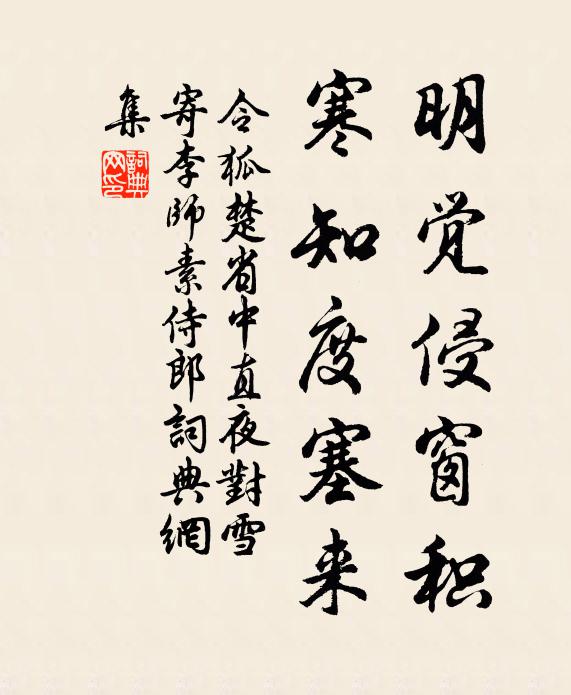 明觉侵窗积
寒知度塞来
令狐楚省中直夜對雪
寄李師素侍郎詞典網
集
詞典网印